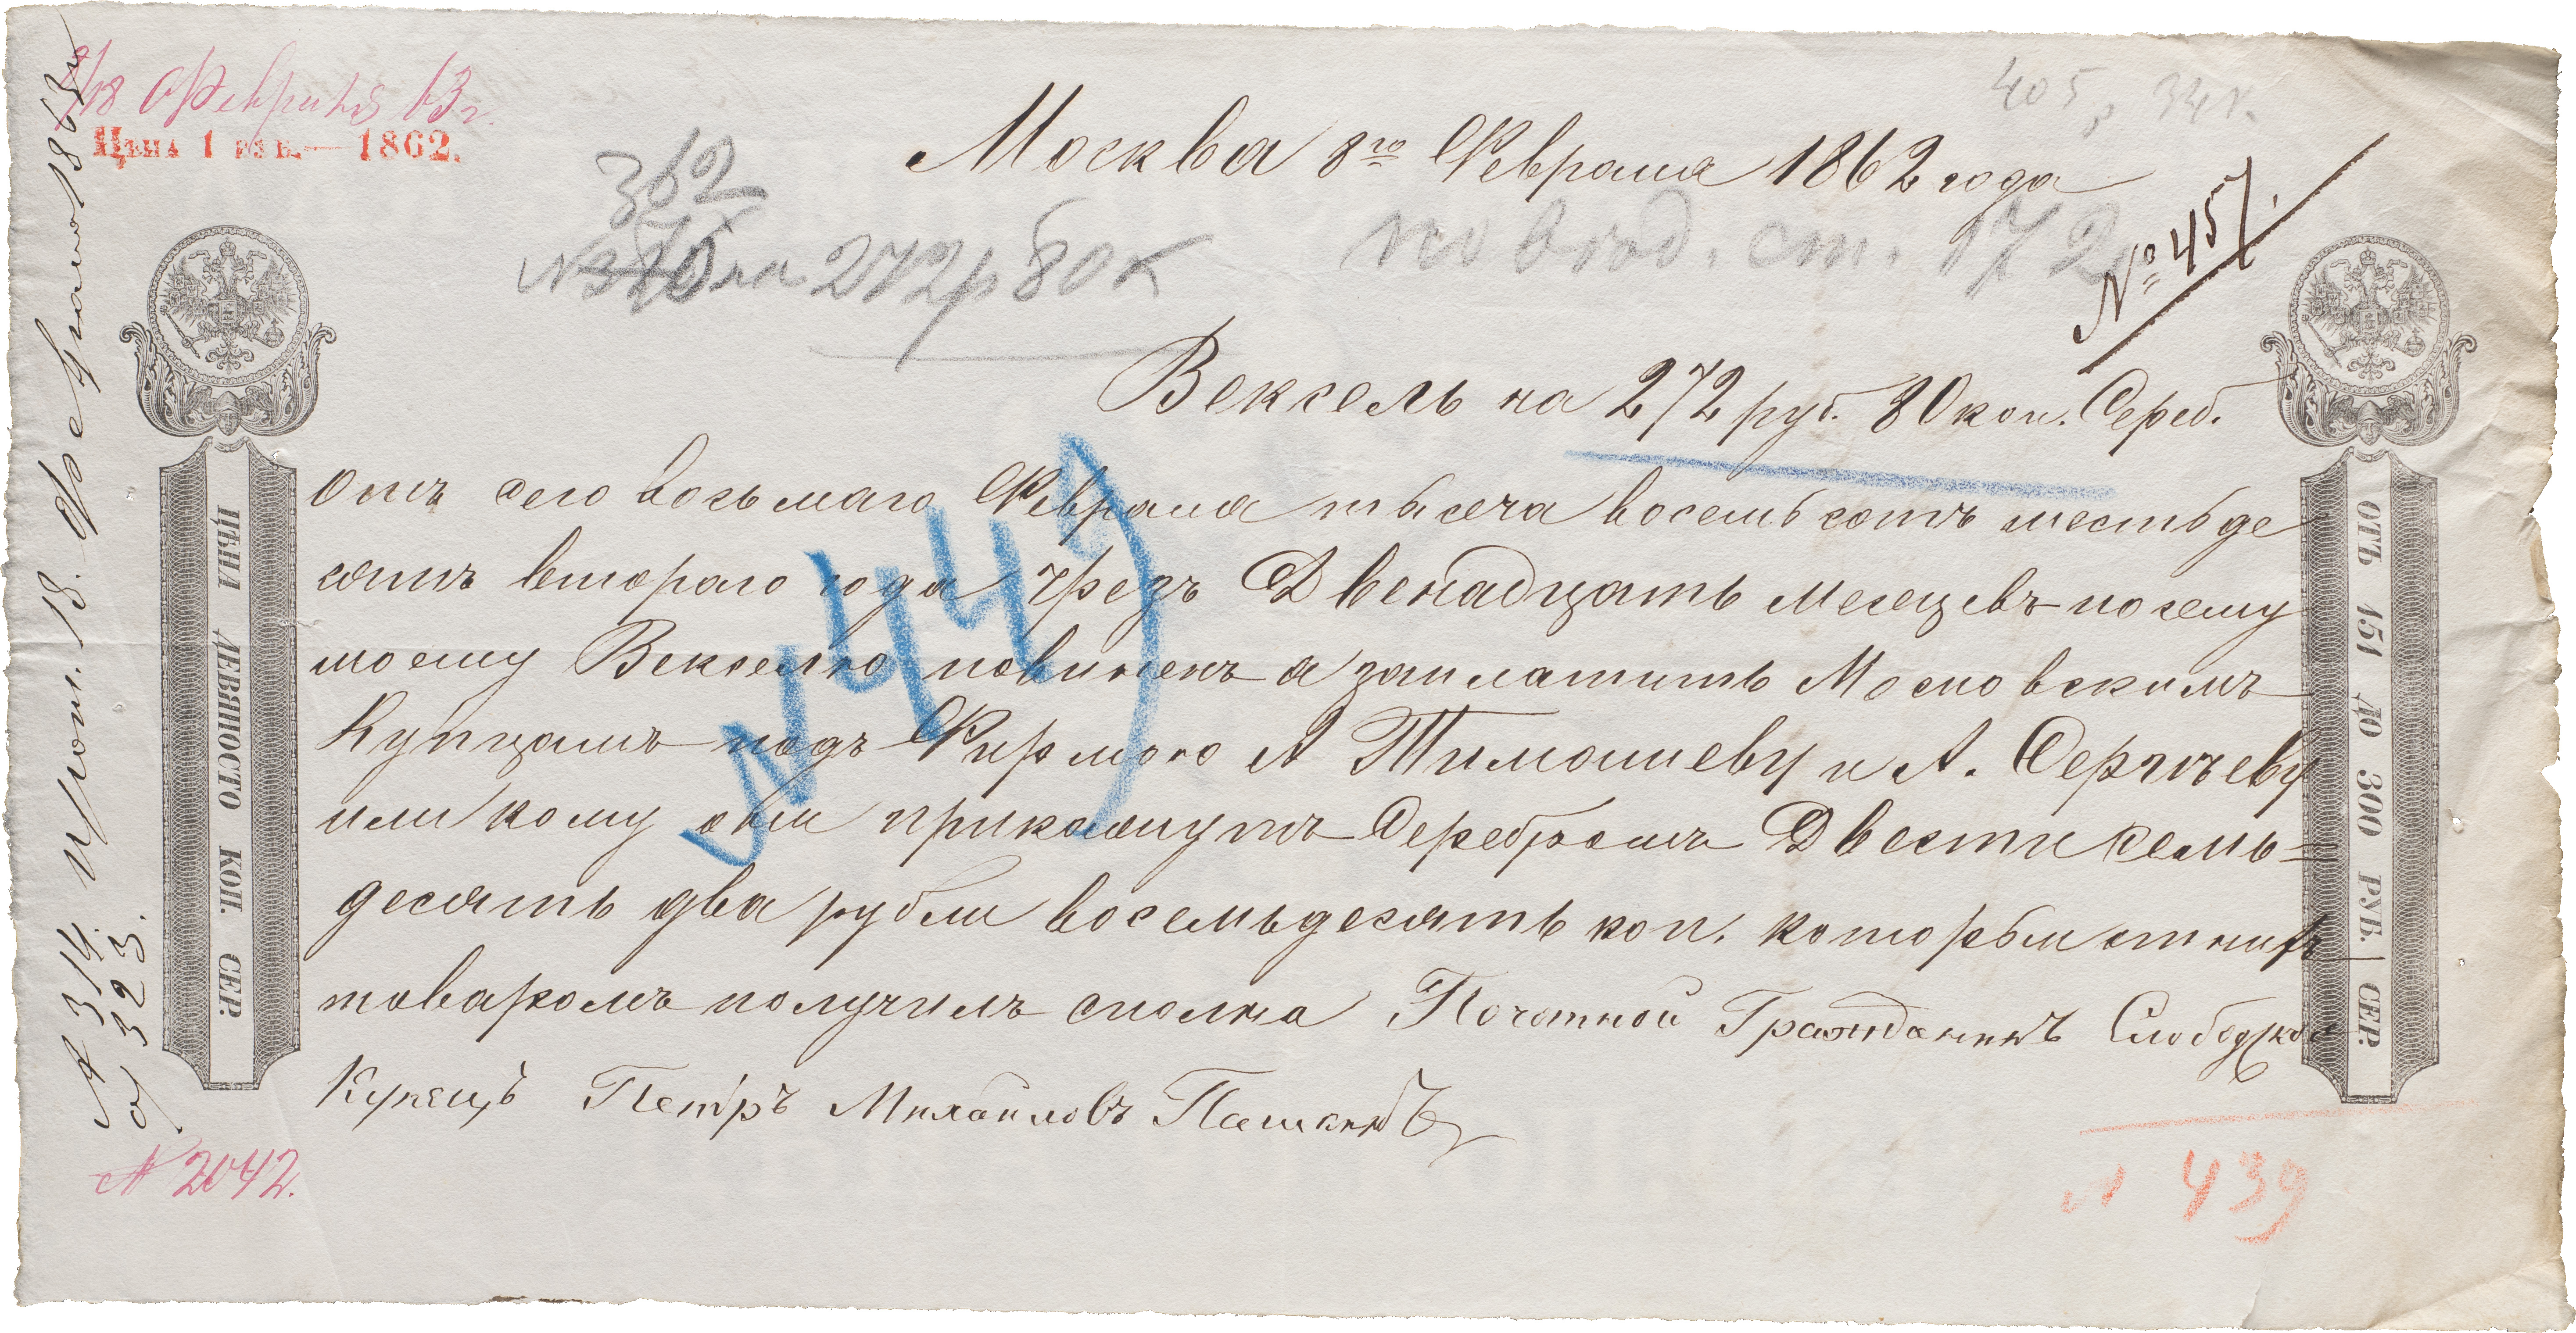 8/18 Февраля 63 г.
Цѣна 1 руб. — 1862.
405 р 34 к.
Москва 8го Февраля 1862 года
362
№ 375 на 272 р 80 к
по вход. ст. 172
№ 457.
Вексель на 272 руб. 80 коп. Сереб.
Отъ сего восьмаго Февраля тысяча восемь сотъ шестьде
сятъ втораго года чрезъ Двенадцать месецевъ по сему
моему Векселю повиненъ я заплатить Московскимъ
Купцамъ подъ Фирмою А Тимашеву и А. Сергѣеву
или кому они прикажутъ Серебромъ Двести семь=
десять два рубли восемьдесять коп. которыи отних
товаромъ получилъ сполна Почотной Гражданинъ Слободской
Купецъ Петръ Михайловъ Пашкинъ
№ 449
ЦѢНА ДЕВЯНОСТО КОП. СЕР.
ОТЪ 151 ДО 300 РУБ. СЕР.
А 314
а/ 323.
18. Февраля 1863
№ 2042.
№ 439